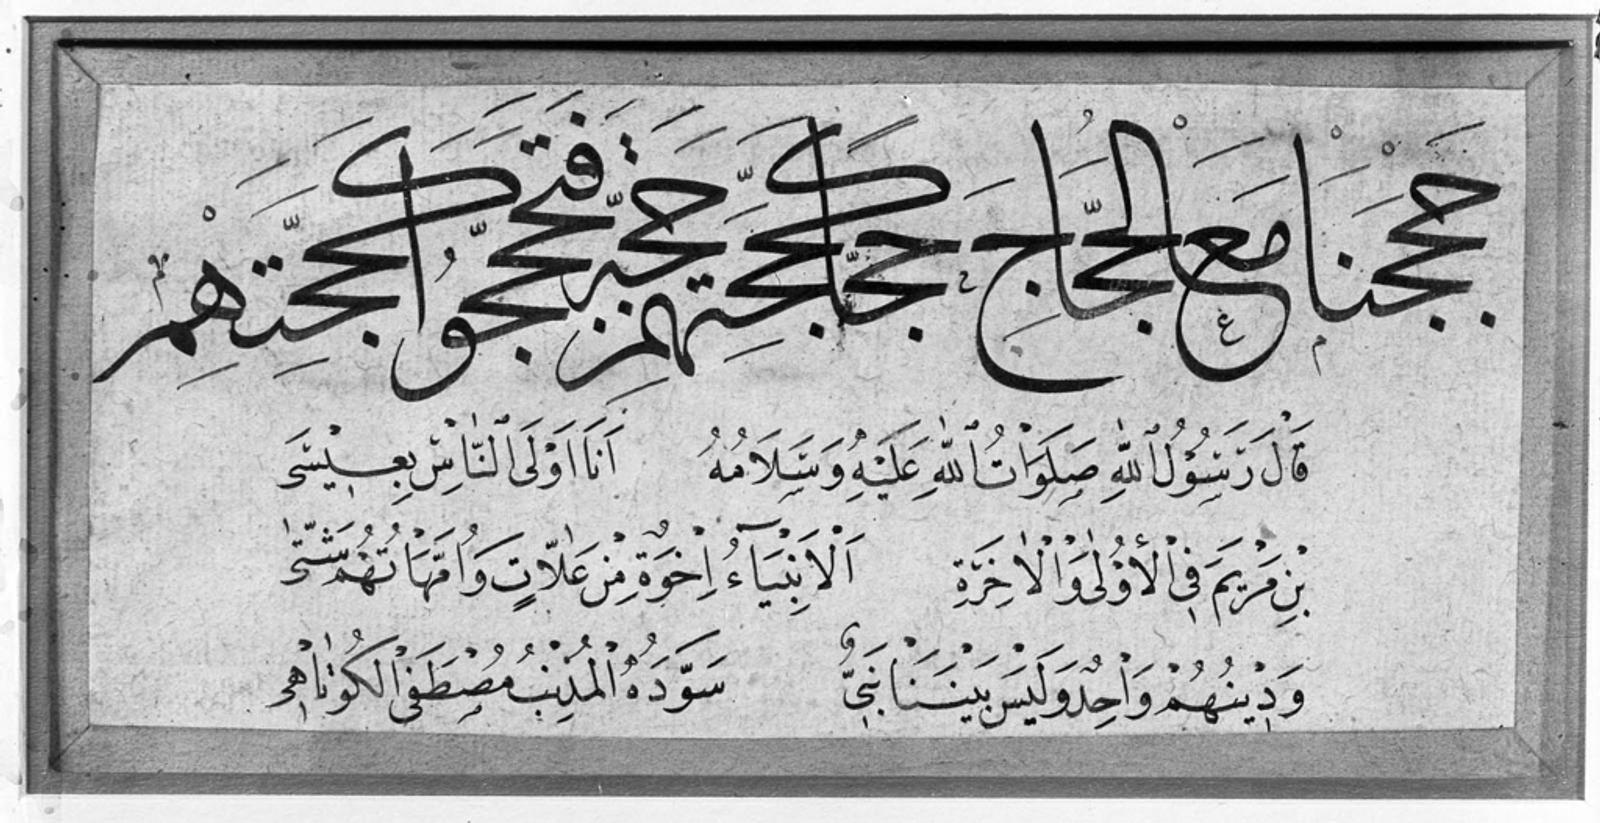 حججنا مع الحجاج حجا كحجتهم حجة فتحججوا كحجتهم
قَالَ رَسُوْلُ اللهِ صَلَوَاتُ اللهِ عَلَيْهِ وَسَلَامُهُ اَنَا اَوْلَى النَّاسِ بِعِيسَى
بْنِ مَرْيَمَ فِي الْاُوْلٰى وَالْاٰخِرَةِ اَلْاَنْبِيَآءُ اِخْوَةٌ مِنْ عَلَّاتٍ وَاُمَّهَاتُهُمْ شَتّٰى
وَدِيْنُهُمْ وَاحِدٌ وَلَيْسَ بَيْنَنَا نَبِيٌّ سَوَّدَهُ الْمُذْنِبُ مُصْطَفَى الْكُوتَاهِي